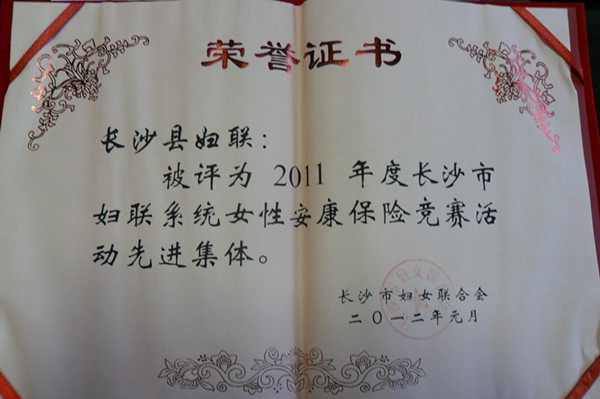 荣誉证书
长沙县妇联：
被评为 2011 年度长沙市
妇联系统女性安康保险竞赛活
动先进集体。
长沙市妇女联合会
二〇一二年元月